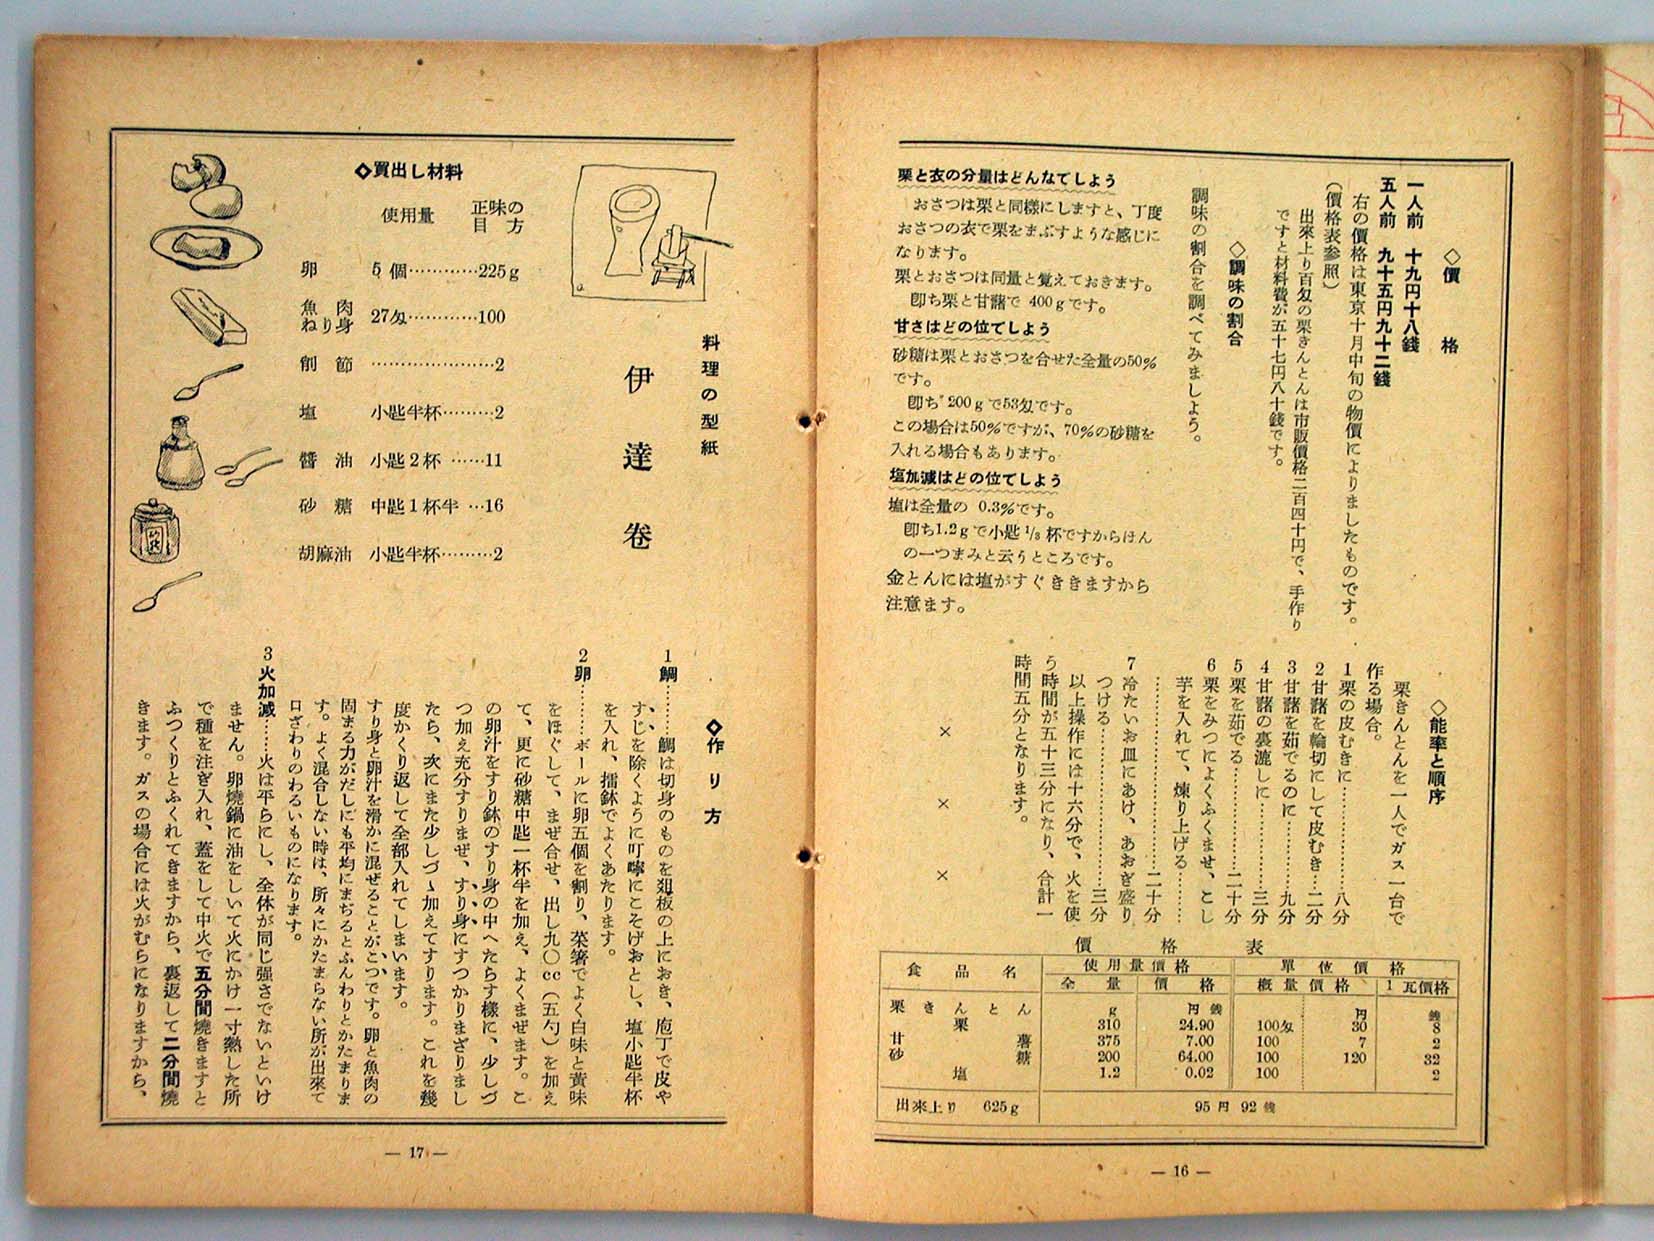 ◇價格
一人前　十九円十八錢
五人前　九十五円九十二錢
右の價格は東京十月中旬の物價によりましたものです。
（價格表参照）
出來上り百匁の栗きんとんは市販價格二百四十円で、手作り
ですと材料費が五十七円八十錢です。
◇調味の割合
調味の割合を調べてみましよう。
栗と衣の分量はどんなでしよう
おさつは栗と同樣にしますと、丁度
おさつの衣で栗をまぶすような感じに
なります。
栗とおさつは同量と覚えておきます。
卽ち栗と甘藷で 400gです。
甘さはどの位でしよう
砂糖は栗とおさつを合せた全量の50%
です。
卽ち 200gで53匁です。
この場合は50%ですが、70%の砂糖を
入れる場合もあります。
塩加減はどの位でしよう
塩は全量の 0.3%です。
卽ち1.2gで小匙⅓杯ですからほん
の一つまみと云うところです。
金とんには塩がすぐききますから
注意ます。
◇能率と順序
栗きんとんを一人でガス一台で
作る場合。
1 栗の皮むきに…………八分
2 甘藷を輪切にして皮むき…二分
3 甘藷を茹でるのに………九分
4 甘藷の裏漉しに…………三分
5 栗を茹でる…………二十分
6 栗をみつによくふくませ、こし
芋を入れて、煉り上げる……
……………………二十分
7 冷たいお皿にあけ、あおぎ盛り
つける……………………三分
以上操作には十六分で、火を使
う時間が五十三分になり、合計一
時間五分となります。
×　×　×
價格表
食品名　使用量價格　單位價格
全量　價格　概量　價格　1瓦價格
栗きんとん　g　円 錢　円　錢
栗　310　24.90　100匁　30　8
甘薯　375　7.00　100　7　2
砂糖　200　64.00　100　120　32
塩　1.2　0.02　100　2
出來上り　625g　95円 92錢
— 16 —
料理の型紙
伊達卷
◇買出し材料
使用量　正味の目方
卵　5個…………225g
魚肉ねり身　27匁…………100
削節　…………………2
塩　小匙半杯………2
醬油　小匙2杯……11
砂糖　中匙1杯半…16
胡麻油　小匙半杯………2
砂糖
◇作り方
1 鯛……鯛は切身のものを爼板の上におき、庖丁で皮や
すじを除くように叮嚀にこそげおとし、塩小匙半杯
を入れ、擂鉢でよくあたります。
2 卵……ボールに卵五個を割り、菜箸でよく白味と黄味
をほぐして、まぜ合せ、出し九〇cc（五勺）を加え
て、更に砂糖中匙一杯半を加え、よくまぜます。こ
の卵汁をすり鉢のすり身の中へたらす樣に、少しづ
つ加え充分すりまぜ、すり身にすつかりまざりまし
たら、次にまた少しづゝ加えてすります。これを幾
度かくり返して全部入れてしまいます。
すり身と卵汁を滑かに混ぜることがこつです。卵と魚肉の
固まる力がだしにも平均にまぢるとふんわりとかたまりま
す。よく混合しない時は、所々にかたまらない所が出來て
口ざわりのわるいものになります。
3 火加減……火は平らにし、全体が同じ强さでないといけ
ません。卵燒鍋に油をしいて火にかけ一寸熱した所
で種を注ぎ入れ、蓋をして中火で五分間燒きますと
ふつくりとふくれてきますから、裏返して二分間燒
きます。ガスの場合には火がむらになりますから、
— 17 —